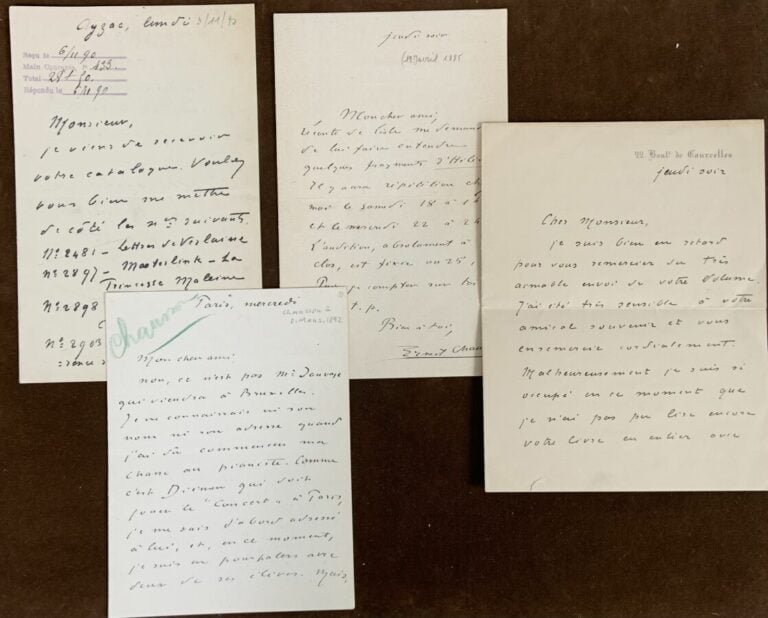 Ayzac, lundi 3/11/90
Reçu le 6/11 90
Main Courante, F° 133
Total 28 f 50
Répondu le 6/11 90
Monsieur,
je viens de recevoir
votre catalogue. Voulez
vous bien me mettre
de côté les nos suivants.
No 2481 - Lettres de Verlaine
no 2897 - Maeterlink - La
Princesse Maleine
No 2898
No 2903
jeudi soir
avril 1885
Mon cher ami,
Leconte de Lisle me demande
de lui faire entendre
quelques fragments d'Hélè
Il y aura répétition ch
moi le samedi 18 à 1
et le mercredi 22 à 2
L'audition, absolument à
clos, est fixée au 25
je compte sur toi
t. p.
Bien à toi,
Ernest Chau
22, Boul.d de Courcelles
jeudi soir
Cher Monsieur,
je suis bien en retard
pour vous remercier du très
aimable envoi de votre volume.
J'ai été très sensible à votre
amical souvenir et vous
en remercie cordialement.
Malheureusement je suis si
occupé en ce moment que
je n'ai pas pu lire encore
votre livre en entier avec
Chausson
Paris, mercredi
Chausson E
Mars, 1892
Mon cher ami,
non, ce n'est pas Mr Sauvage
qui viendra à Bruxelles.
Je ne connaissais ni son
nom ni son adresse quand
j'ai dû commencer ma
chasse au pianiste. Comme
c'est Diémer qui doit
jouer le "Concert" à Paris,
je me suis d'abord adressé
à lui, et, en ce moment,
je suis en pourparlers avec
deux de ses élèves. Mais,